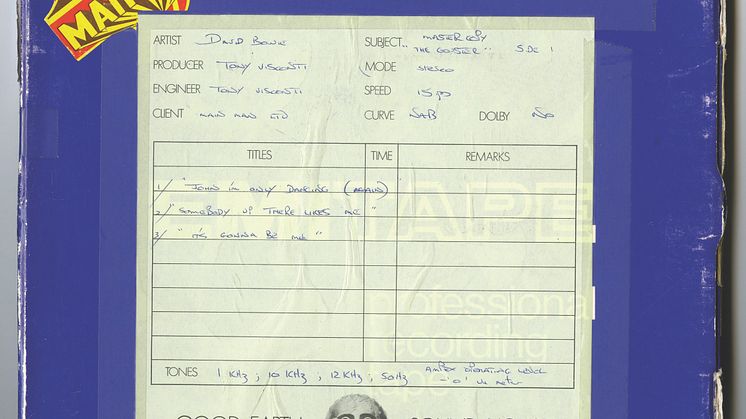 MAIN
ARTIST David Bowie SUBJECT MASTER COPY
"THE GOUSTER" SIDE 1
PRODUCER TONY VISCONTI MODE STEREO
ENGINEER TONY VISCONTI SPEED 15 IPS
CLIENT MAIN MAN LTD CURVE NAB DOLBY NO
TITLES TIME REMARKS
1/ "JOHN I'M ONLY DANCING (AGAIN)"
2/ "SOMEBODY UP THERE LIKES ME"
3/ "IT'S GONNA BE ME"
TAPE
professional
recording
tape
TONES 1 KHz ; 10 KHz ; 12 KHz ; 50Hz AMPEX OPERATING LEVEL
= 'O' VU METER
GOOD EARTH